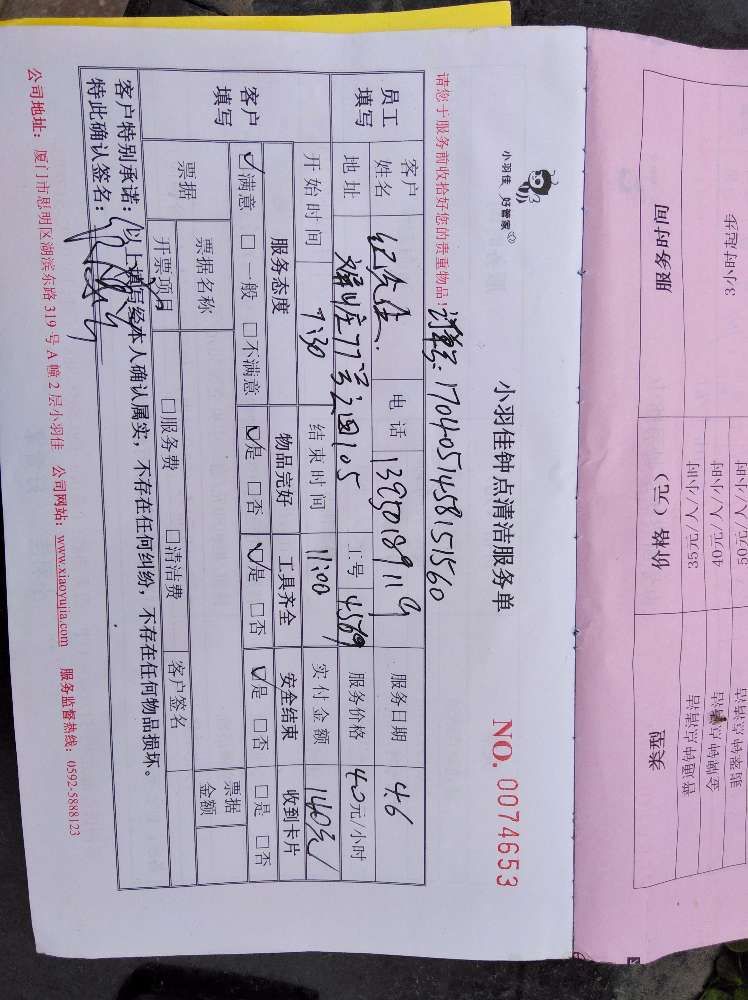 小羽佳 好管家
小羽佳钟点清洁服务单
NO. 0074653
请您于服务前收拾好您的贵重物品!
1704051458151560
员工填写
客户姓名 电话 服务日期 4.6
地址 77号 105 工号 4569 服务价格 40元/小时
开始时间 7:30 结束时间 11:00 实付金额 140元
客户填写
服务态度 物品完好 工具齐全 安全结束 收到卡片
☑满意 □一般 □不满意 ☑是 □否 ☑是 □否 ☑是 □否 □是 □否
票据 票据名称 票据金额
开票项目 □服务费 □清洁费 客户签名
客户特别承诺:以上填写经本人确认属实,不存在任何纠纷,不存在任何物品损坏。
特此确认签名:
公司地址:厦门市思明区湖滨东路319号A幢2层小羽佳 公司网站:www.xiaoyujia.com 服务监督热线:0592-5888123
服务时间 价格(元) 类型
3小时起步 35元/人/小时 普通钟点清洁
40元/人/小时 金牌钟点清洁
50元/人/小时